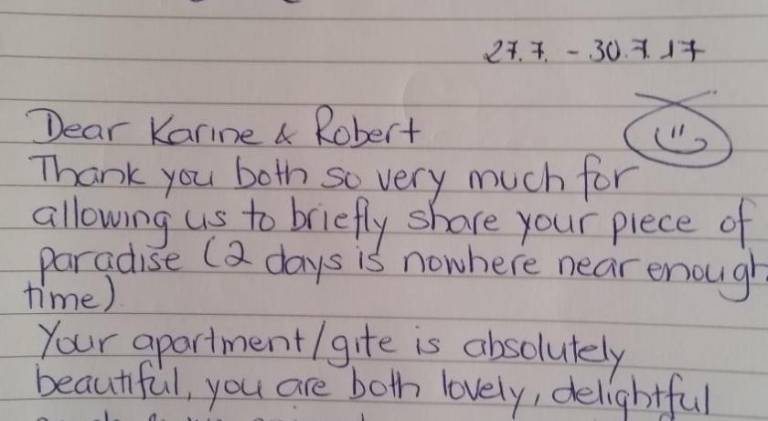 27.7. - 30.7.17
Dear Karine & Robert
Thank you both so very much for
allowing us to briefly share your piece of
paradise (2 days is nowhere near enough
time)
Your apartment/gite is absolutely
beautiful, you are both lovely, delightful